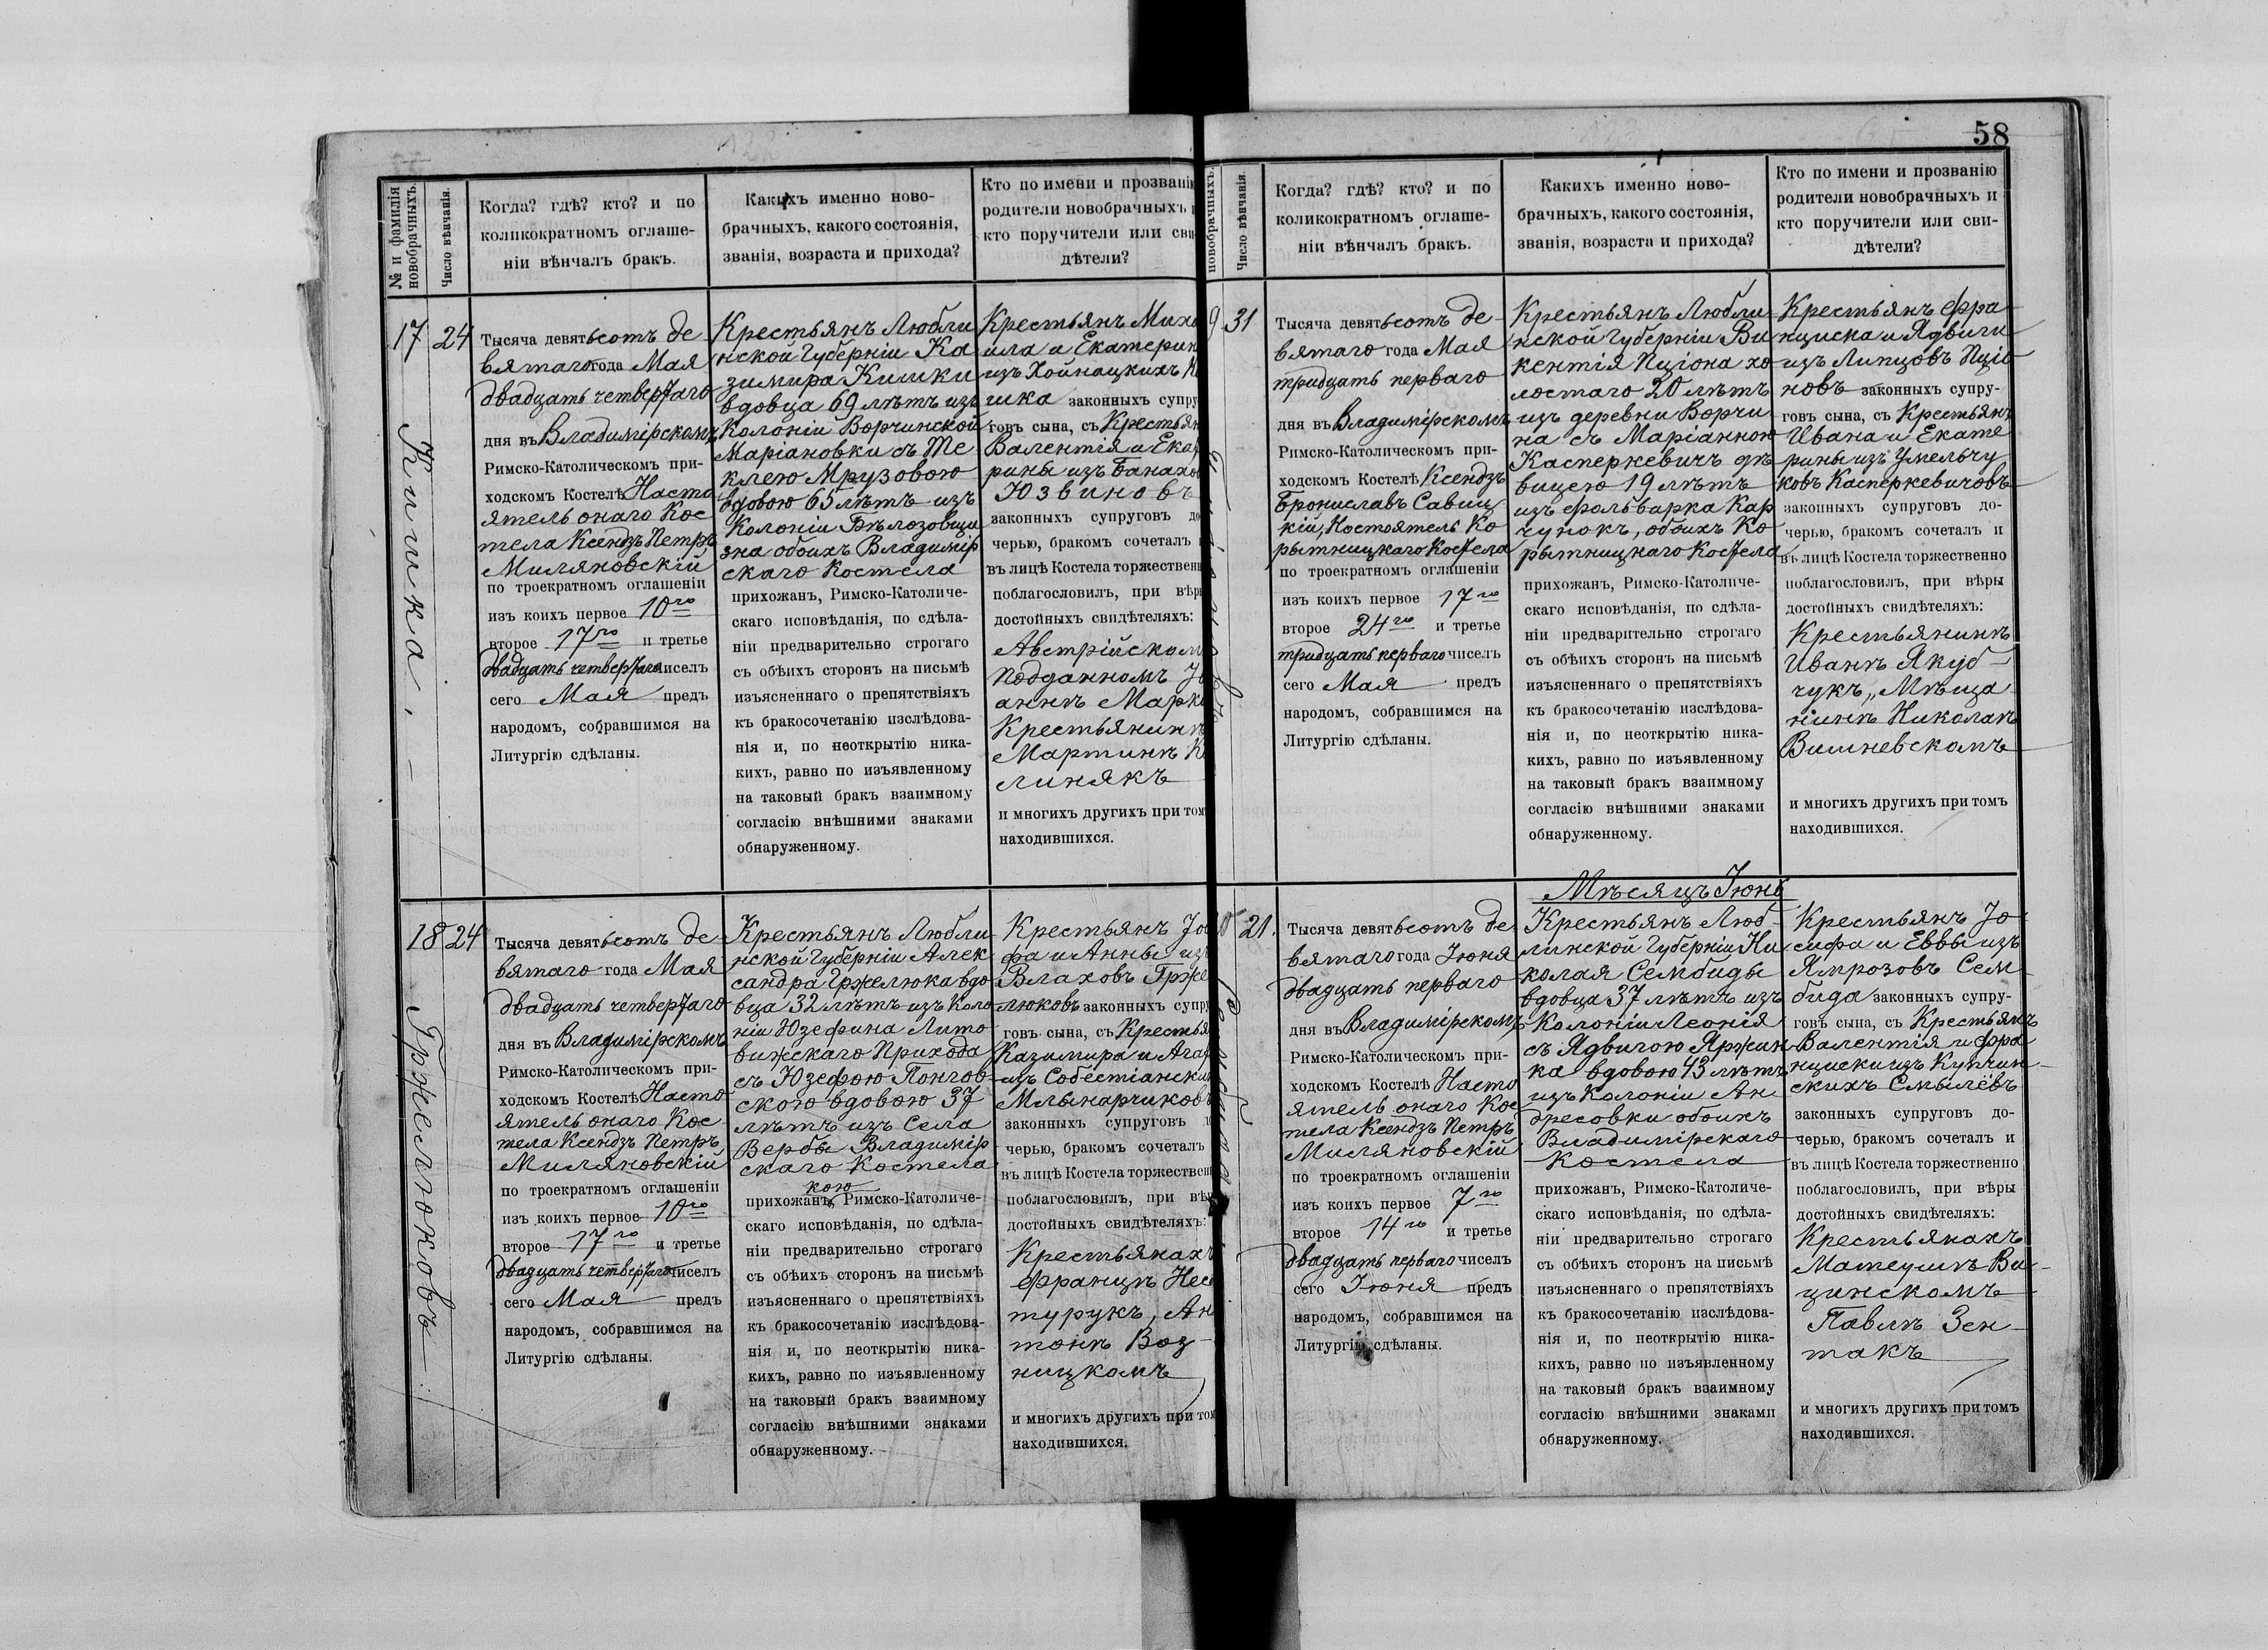 58
№ и фамилія
новобрачныхъ.
Число вѣнчанія.
Когда? гдѣ? кто? и по
коликократномъ оглаше-
ніи вѣнчалъ бракъ.
Какихъ именно ново-
брачныхъ, какого состоянія,
званія, возраста и прихода?
Кто по имени и прозванію
родители новобрачныхъ
кто поручители или сви
дѣтели?
17
Кишка.
24
Тысяча девятьсотъ де
вятаго года Мая
двадцать четвертаго
дня въ Владимірскомъ
Римско-Католическомъ при-
ходскомъ Костелѣ Насто
ятель онаго Кос
тела Ксендзъ Петръ
Миляновскій
по троекратномъ оглашеніи
изъ коихъ первое 10го
второе 17го и третье
двадцать четвертаго чиселъ
сего Мая предъ
народомъ, собравшимся на
Литургію сдѣланы.
Крестьянъ Любли
нской Губерніи Ка
зимира Кишки
вдовца 69 лѣтъ изъ
Колоніи Ворчинской
Маріановки съ Те
клею Мрузовою
вдовою 65 лѣтъ изъ
Колоніи Бѣлозовщи
зна обоихъ Владимір
скаго Костела
прихожанъ, Римско-Католиче-
скаго исповѣданія, по сдѣла-
ніи предварительно строгаго
съ обѣихъ сторонъ на письмѣ
изъясненнаго о препятствіяхъ
къ бракосочетанію изслѣдова-
нія и, по неоткрытію ника-
кихъ, равно по изъявленному
на таковый бракъ взаимному
согласію внѣшними знаками
обнаруженному.
Крестьянъ Миха
ила и Екатерин
изъ Хойнацкихъ
шка законныхъ супру
говъ сына, съ Крестьян
Валентія и Екат
рины изъ Банахов
Юзвиновъ
законныхъ супруговъ до
черью, бракомъ сочеталъ
въ лицѣ Костела торжествен
поблагословилъ, при вѣр
достойныхъ свидѣтеляхъ:
Австрійском
подданномъ Ј
аннѣ Марк
Крестьянинѣ
Мартинѣ К
линякъ
и многихъ другихъ при том
находившихся.
18
Гржелюковъ
24
Тысяча девятьсотъ де-
вятаго года Мая
двадцать четвертаго
дня въ Владимірскомъ
Римско-Католическомъ при-
ходскомъ Костелѣ Насто
ятель онаго Кос
тела Ксендзъ Петръ
Миляновскій
по троекратномъ оглашеніи
изъ коихъ первое 10го
второе 17го и третье
двадцать четвертаго чиселъ
сего Мая предъ
народомъ, собравшимся на
Литургію сдѣланы.
Крестьянъ Любли
нской Губерніи Алек
сандра Гржелюка вдо
вца 32 лѣтъ изъ Коло
ніи Юзефина Лито
вижскаго Прихода
съ Юзефою Понгов
скою вдовою 37
лѣтъ изъ Села
Вербы Владимір
скаго Костела
кою
прихожанъ, Римско-Католиче-
скаго исповѣданія, по сдѣла-
ніи предварительно строгаго
съ обѣихъ сторонъ на письмѣ
изъясненнаго о препятствіяхъ
къ бракосочетанію изслѣдова-
нія и, по неоткрытію ника-
кихъ, равно по изъявленному
на таковый бракъ взаимному
согласію внѣшними знаками
обнаруженному.
Крестьянъ Јос
фа и Анны изъ
Влаховъ Грже
люковъ законныхъ супру
говъ сына, съ Крестья
Казимира и Ага
изъ Собестіански
Млынарчиков
законныхъ супруговъ д
черью, бракомъ сочеталъ
въ лицѣ Костела торжествен
поблагословилъ, при вѣ
достойныхъ свидѣтеляхъ:
Крестьянахъ
Францѣ Нес
турукъ, Ан
тонѣ Воз-
ницкомъ
и многихъ другихъ при том
находившихся.
новобрачныхъ.
Число вѣнчанія.
Когда? гдѣ? кто? и по
коликократномъ оглаше-
ніи вѣнчалъ бракъ.
Какихъ именно ново-
брачныхъ, какого состоянія,
званія, возраста и прихода?
Кто по имени и прозванію
родители новобрачныхъ и
кто поручители или сви-
дѣтели?
9
31
Тысяча девятьсотъ де-
вятаго года Мая
тридцать перваго
дня въ Владимірскомъ
Римско-Католическомъ при-
ходскомъ Костелѣ Ксендзъ
Брониславъ Савиц
кій, Настоятель Ко
рытницкаго Костела
по троекратномъ оглашеніи
изъ коихъ первое 17го
второе 24го и третье
тридцать перваго чиселъ
сего Мая предъ
народомъ, собравшимся на
Литургію сдѣланы.
Крестьянъ Любли
нской Губерніи Ви
кентія Пціона хо
лостаго 20 лѣтъ
изъ деревни Ворчи
на съ Маріанною
Касперкевичъ дѣ
вицею 19 лѣтъ
изъ фольварка Кар
чунокъ, обоихъ Ко
рытницкаго Костела
прихожанъ, Римско-Католиче-
скаго исповѣданія, по сдѣла-
ніи предварительно строгаго
съ обѣихъ сторонъ на письмѣ
изъясненнаго о препятствіяхъ
къ бракосочетанію изслѣдова-
нія и, по неоткрытію ника-
кихъ, равно по изъявленному
на таковый бракъ взаимному
согласію внѣшними знаками
обнаруженному.
Крестьянъ Фра
нциска и Ядвиги
изъ Липцовъ Пціо
новъ законныхъ супру-
говъ сына, съ Крестьянъ
Ивана и Екате
рины изъ Умельчу
ковъ Касперкевичовъ
законныхъ супруговъ до-
черью, бракомъ сочеталъ и
въ лицѣ Костела торжественно
поблагословилъ, при вѣры
достойныхъ свидѣтеляхъ:
Крестьянинѣ
Иванѣ Якуб-
чукъ, Мѣща
нинѣ Николаѣ
Вишневскомъ
и многихъ другихъ при томъ
находившихся.
Мѣсяцъ Іюнь
21.
Тысяча девятьсотъ де
вятаго года Іюня
двадцать перваго
дня въ Владимірскомъ
Римско-Католическомъ при-
ходскомъ Костелѣ Насто
ятель онаго Кос
тела Ксендзъ Петръ
Миляновскій
по троекратномъ оглашеніи
изъ коихъ первое 7го
второе 14го и третье
двадцать перваго чиселъ
сего Іюня предъ
народомъ, собравшимся на
Литургію сдѣланы.
Крестьянъ Люб-
линской Губерніи Ни
колая Сембиды
вдовца 37 лѣтъ изъ
Колоніи Леонія
съ Ядвигою Яржин
ка вдовою 43 лѣтъ
изъ Колоніи Ан
дресовки обоихъ
Владимірскаго
Костела
прихожанъ, Римско-Католиче-
скаго исповѣданія, по сдѣла-
ніи предварительно строгаго
съ обѣихъ сторонъ на письмѣ
изъясненнаго о препятствіяхъ
къ бракосочетанію изслѣдова-
нія и, по неоткрытію ника-
кихъ, равно по изъявленному
на таковый бракъ взаимному
согласію внѣшними знаками
обнаруженному.
Крестьянъ Јо
сифа и Еввы изъ
Ямрозовъ Сем-
бида законныхъ супру-
говъ сына, съ Крестьянъ
Валентія и Фра
нциски изъ Купчин-
скихъ Смылёвъ
законныхъ супруговъ до-
черью, бракомъ сочеталъ и
въ лицѣ Костела торжественно
поблагословилъ, при вѣры
достойныхъ свидѣтеляхъ:
Крестьянахъ
Матеушѣ Ви-
цинскомъ
Павлѣ Зен-
такъ
и многихъ другихъ при томъ
находившихся.